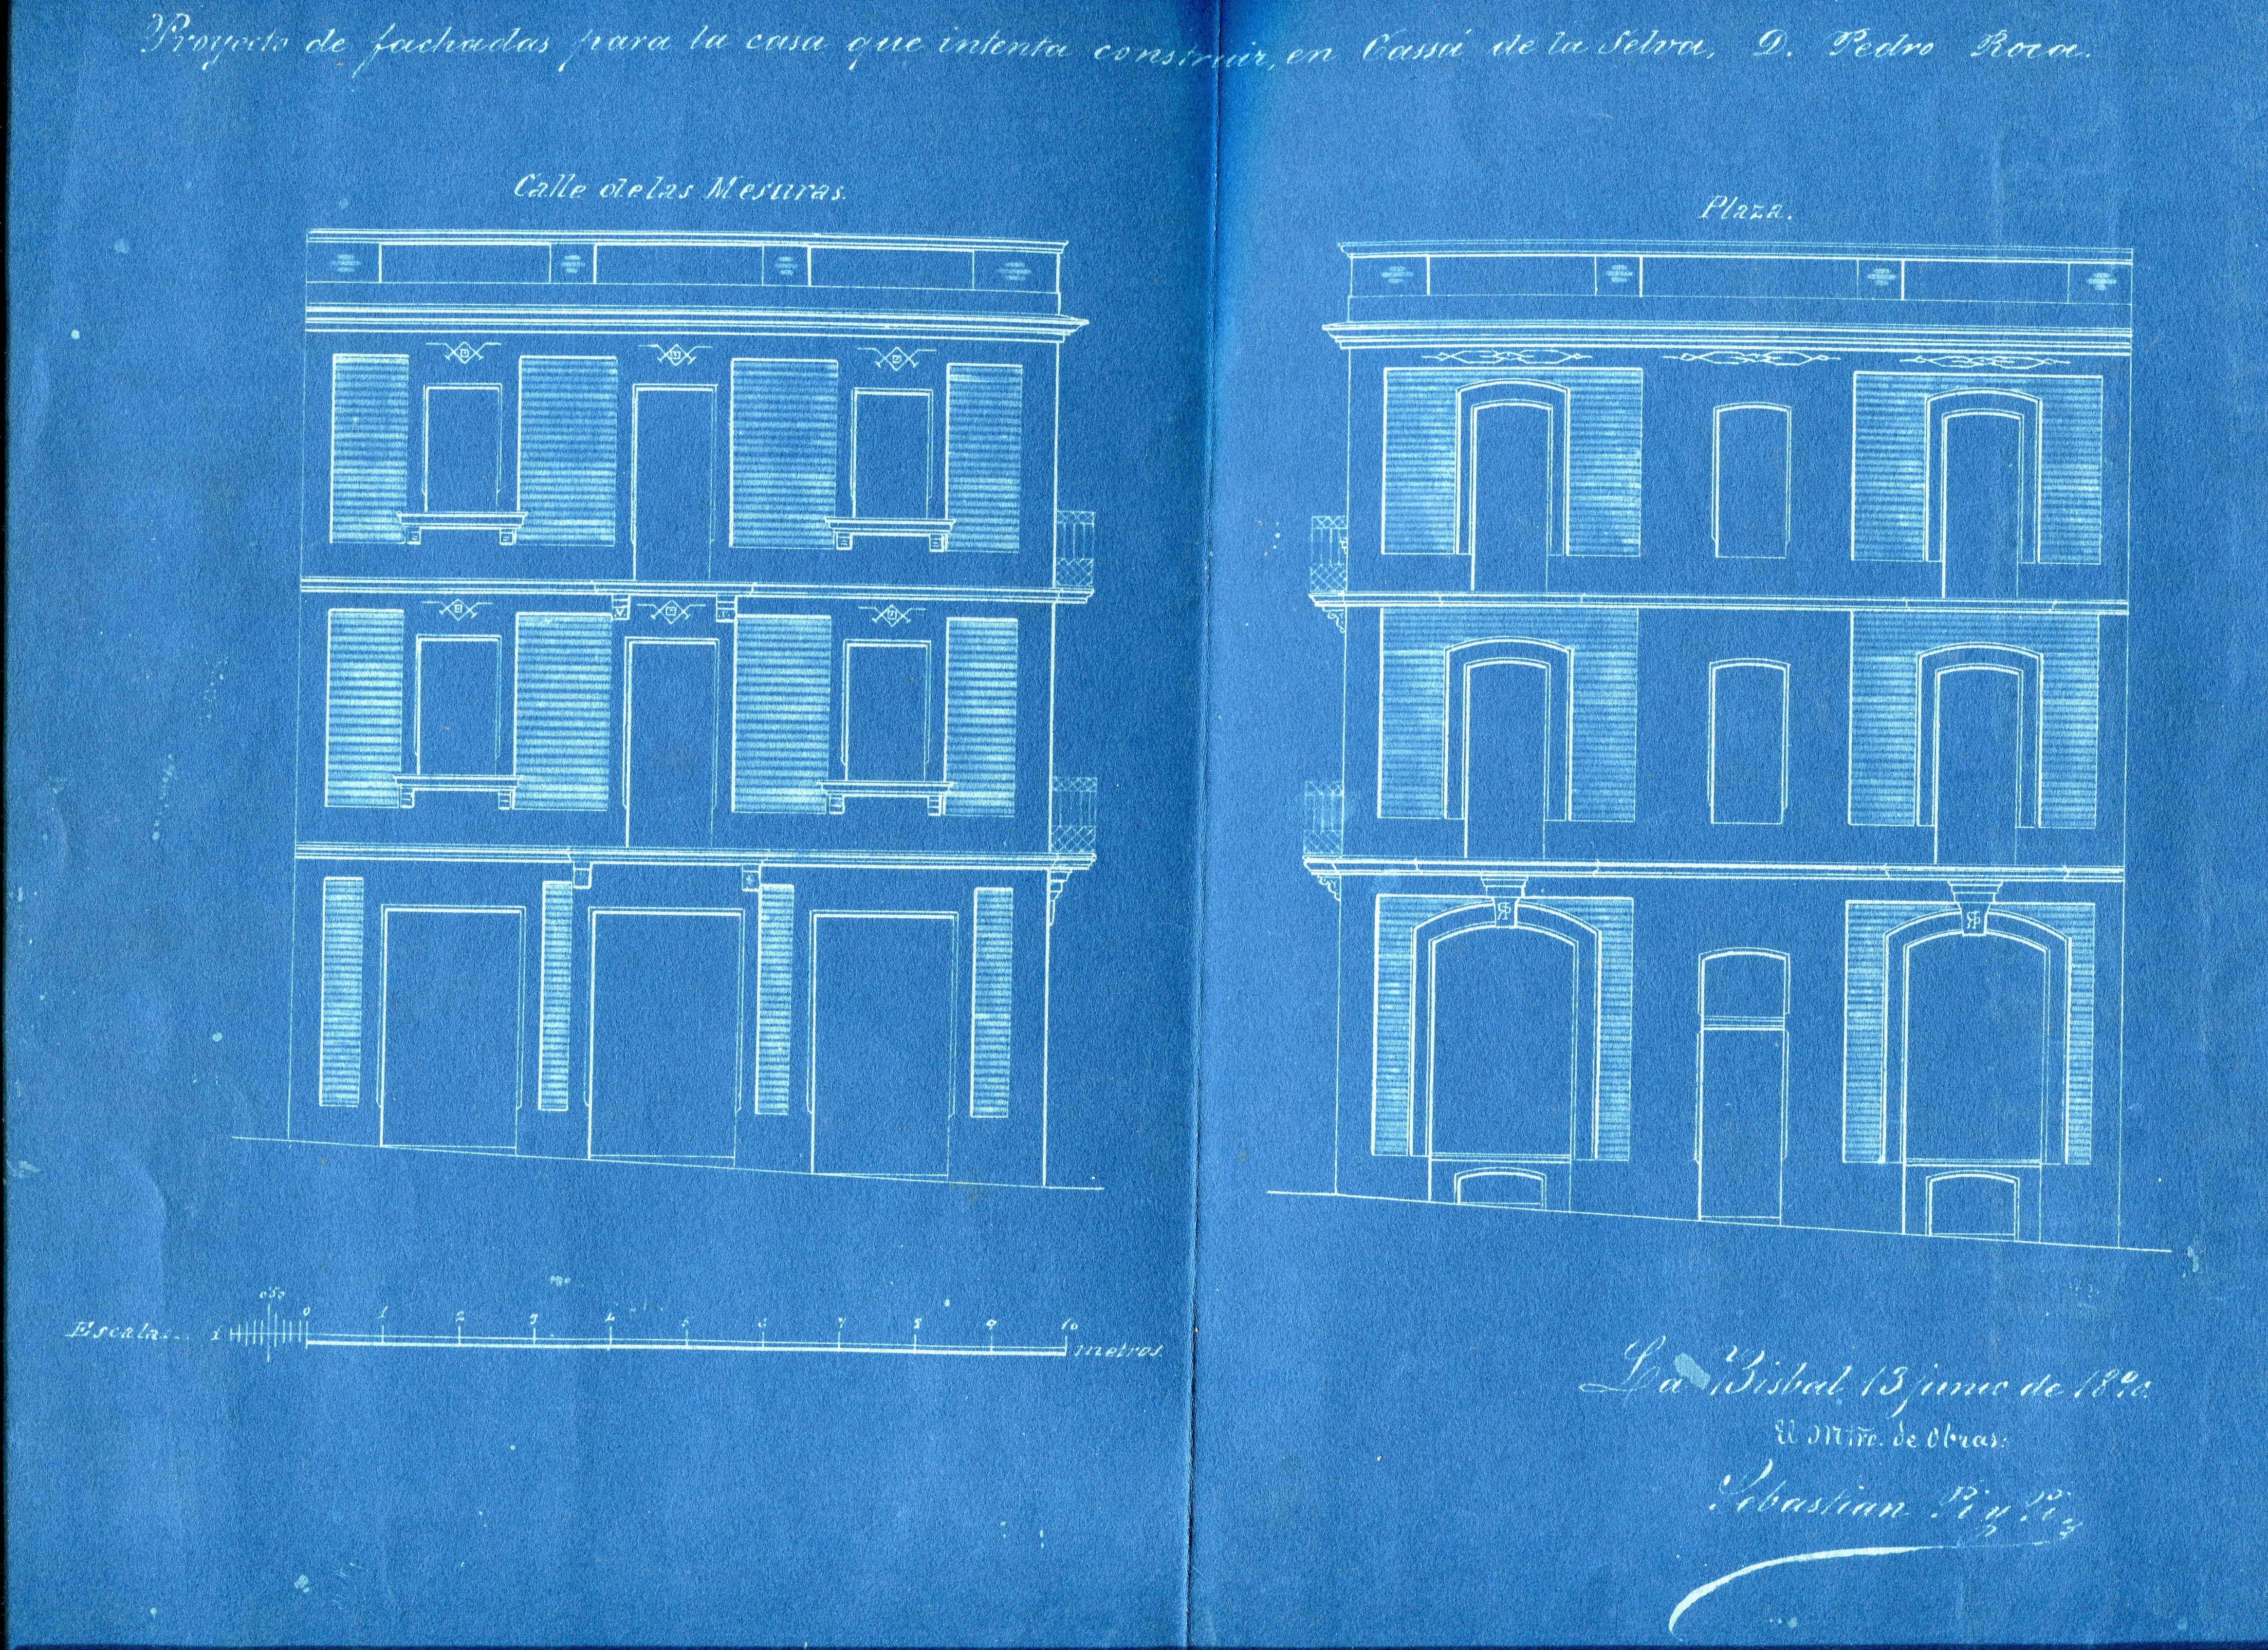 Proyecto de fachadas para la casa que intenta construir, en Cassá de la Selva, D. Pedro Roca.
Calle de las Mesuras.
Plaza.
Escala 1 050 0 1 2 3 4 5 6 7 8 9 10 metros.
La Bisbal 13 junio de 1890.
El Mtro. de Obras:
Sebastian Pi y Pi